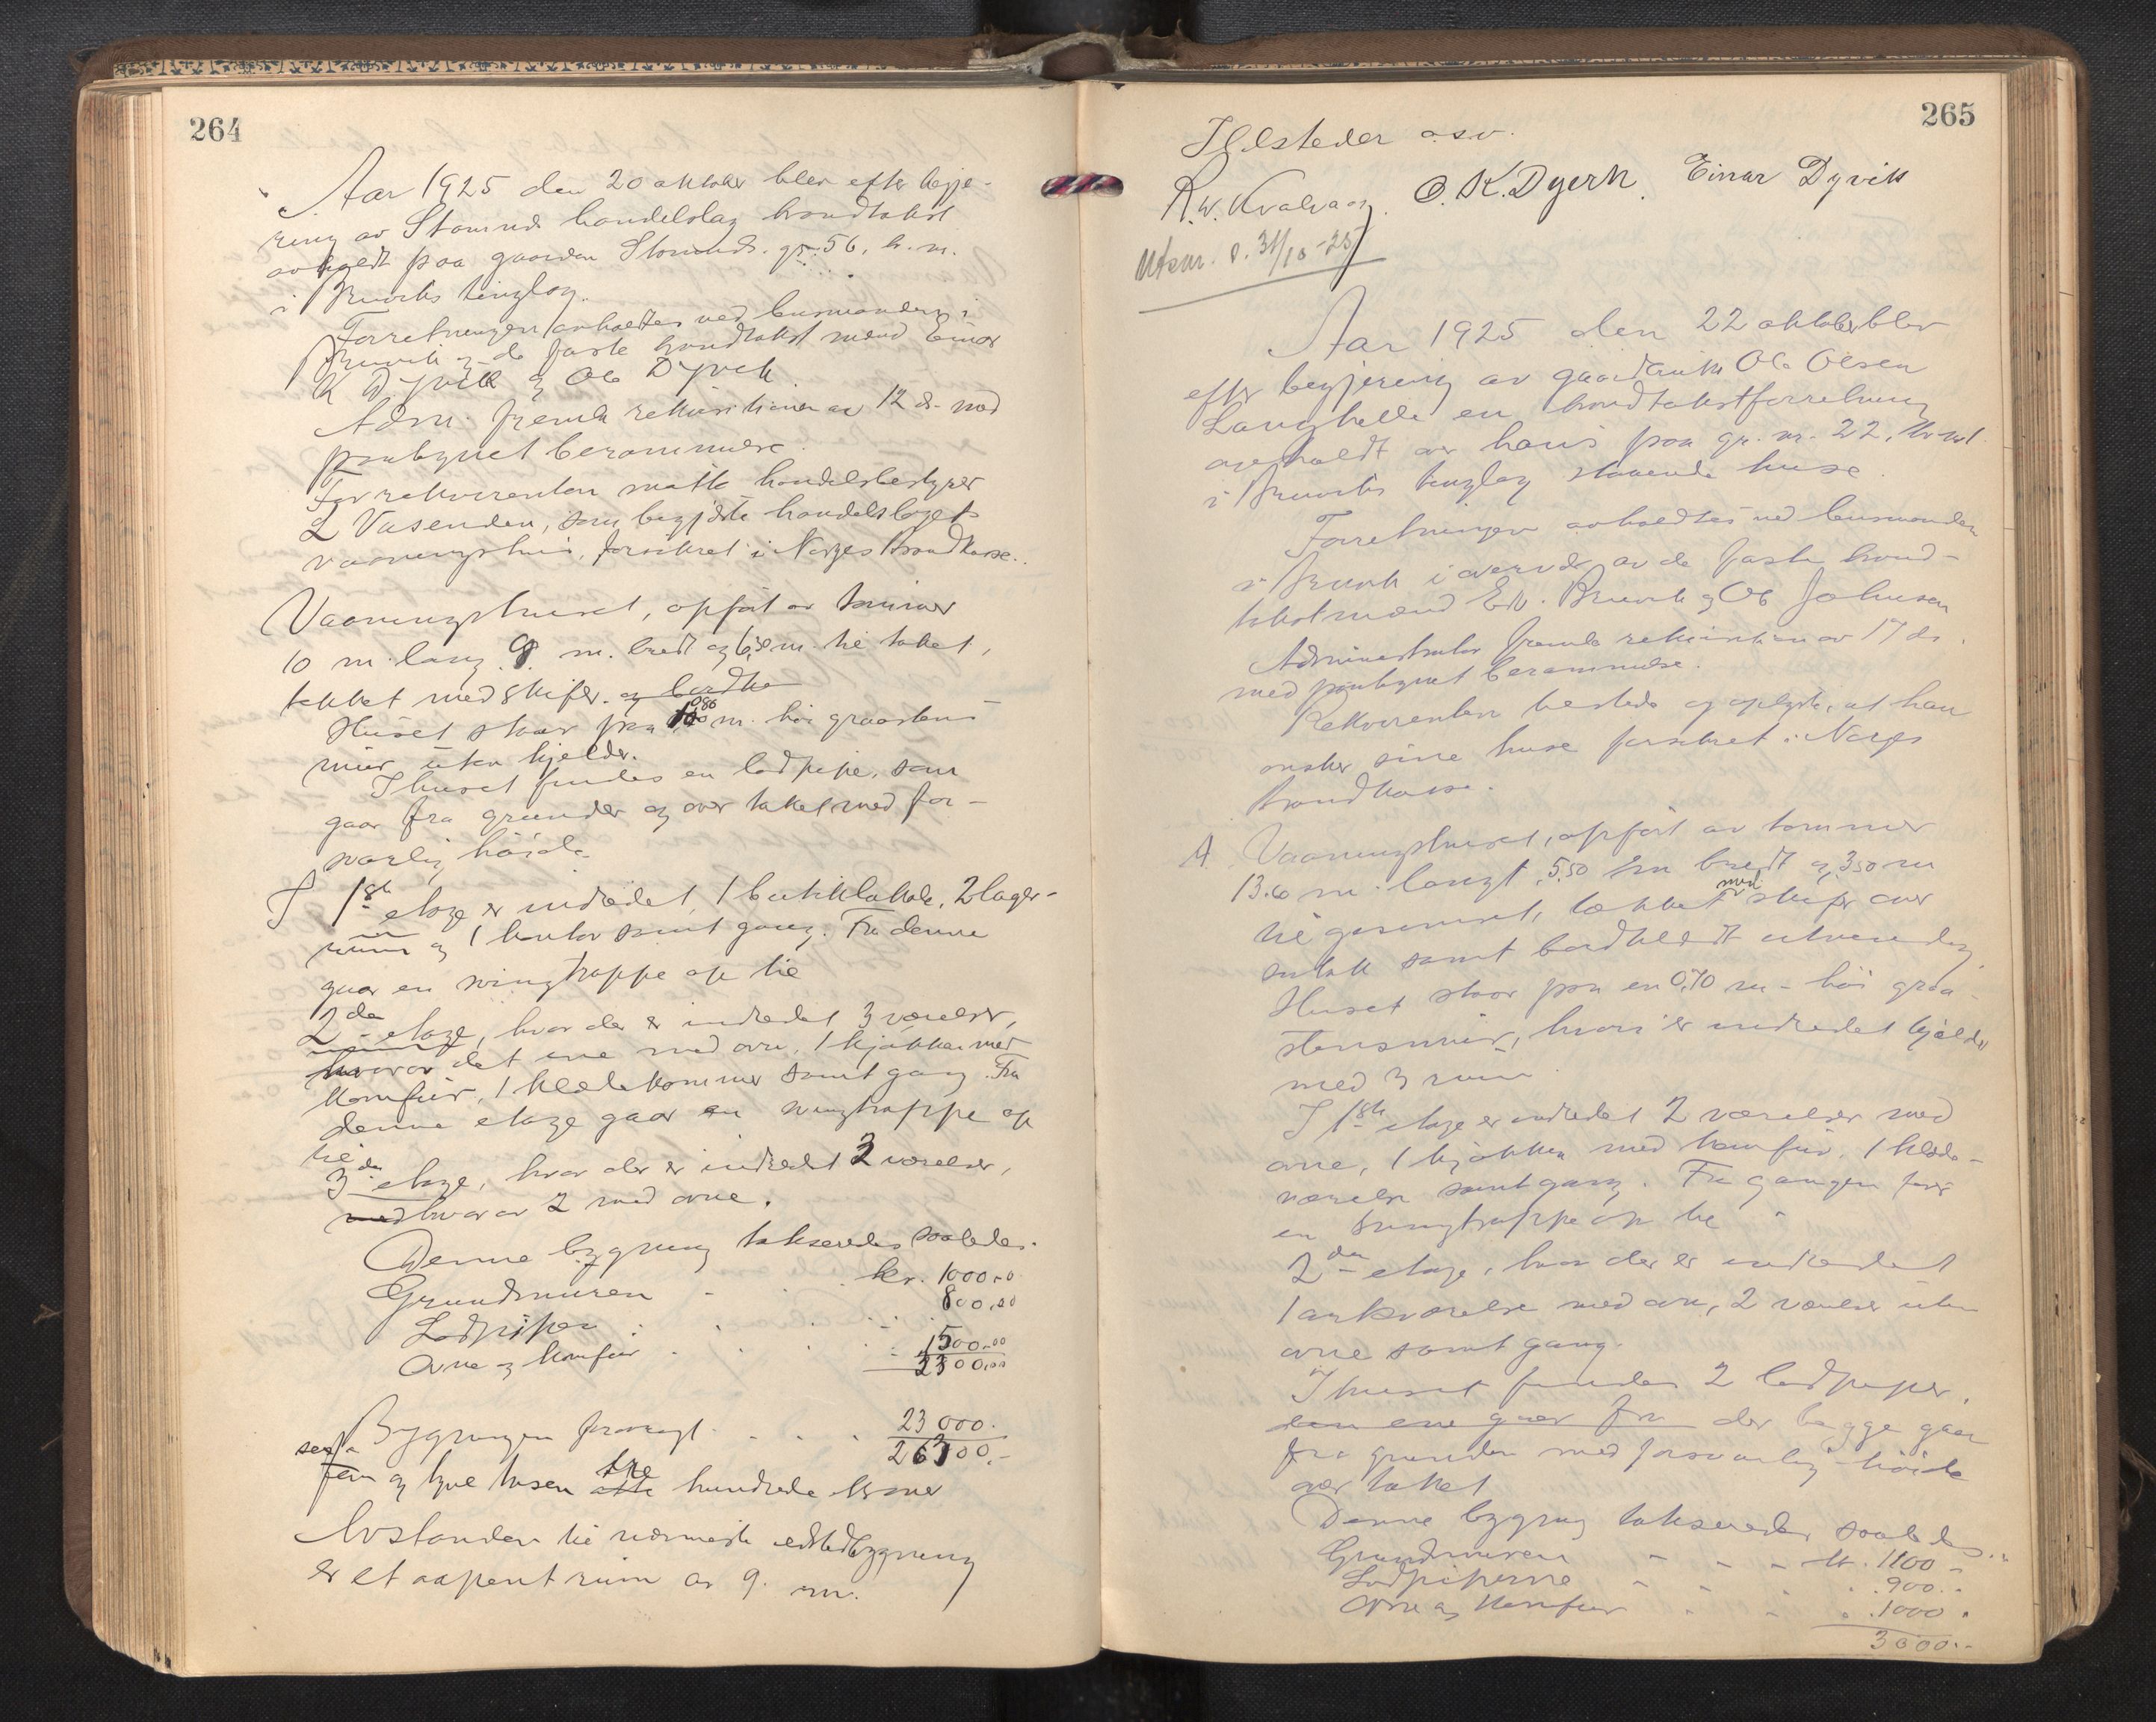 264
Aar 1925 den 20 oktober blev efter begje-
ring av Stamnes handelslag brandtakst
avholdt paa gaarden Stamnes gr. 56, br. nr.
i Bruvik tinglag.
Forretningen avholdtes ved lensmanden i
Bruvik og de faste brandtakst mænd Einar
K Dyvik og Ole Dyvik
Adm. fremla rekvisitionen av 12 ds. med
paategnet berammelse.
For rekvirenten møtte handelsbestyrer
L Vasenden, som begjærte handelslagets
vaaningshus, forsikret i Norges Brandkasse.
Vaaningshuset, opført av tømmer
10 m. lang 9. m. bredt og 6,8 m. til taket,
tekket med skifer. og bordkl
Huset staar paa 0,80 m. høi graastens
mur uten kjelder.
I huset findes en lodpipe, som
gaar fra grunden og over taket med for-
svarlig høide
I 1ste etage er indredet 1 butiklokale, 2 lager-
rum og 1 kontor samt gang. Fra denne
gaar en svingtrappe op til
2den etage, hvor der er indredet 3 værelser,
hvorav det ene med ovn, 1 kjøkken med
komfur, 1 klædekammer samt gang. Fra
denne etage gaar en svingtrappe op
til
3die etage, hvor der er indredet 3 værelser,
med hvorav 2 med ovne.
Denne bygning takseredes saaledes.
Grundmuren - . kr. 1000,00
Lodpipen : . . . 800,00
Ovne og komfur . . . . 1500,00
3300,00
Bygningen forøvrigt . . . . 23000.
26300.-
seks
fem og tyve tusen tre
otte hundrede kroner
Avstanden til nærmeste ildstedsbygning
er et aapent rum av 9. m.
265
Ildsteder osv.
R. W. Kvalvaag. O. K. Dyvik. Einar Dyvik
Utskr. d. 31/10-25
Aar 1925 den 22 oktober blev
efter begjæring av gaardbruker Ole Olsen
Langhelle en brandtakstforretning
avholdt over hans paa gr. nr. 22, br. nr. 1
i Bruvik tinglag staaende huse.
Forretningen avholdtes ved lensmanden
i Bruvik i overvær av de faste brand-
takstmænd Er. Bruvik og Ole Johnsen
Administrator fremla rekvisitionen av 17 ds.
med paategnet berammelse.
Rekvirenten bestede og oplyste, at han
ønsker sine huse forsikret i Norges
Brandkasse.
A. Vaaningshuset, opført av tømmer
13.60 m. langt, 5.50 m bredt og 3,50 m
til gesimset, tækket med skifer over
sutak samt bordklædt utvendig.
Huset staar paa en 0,70 m- høi graa-
stensmur, hvori er indredet kjelder
med 3 rum.
I 1ste etage er indredet 2 værelser med
ovne, 1 kjøkken med komfur, 1 klæde-
værelse samt gang. Fra gangen fører
en svingtrappe op til
2den etage, hvor der er indredet
1 arkværelse med ovn, 2 værelser uten
ovne samt gang.
I huset findes 2 lodpiper,
den ene gaar fra der begge gaar
fra grunden med forsvarlig høide
over taket
Denne bygning takseredes saaledes.
Grundmuren - - - kr. 1100 -
Lodpiperne - - . 900.-
Ovne og Komfur . - . 1000 .
3000.-